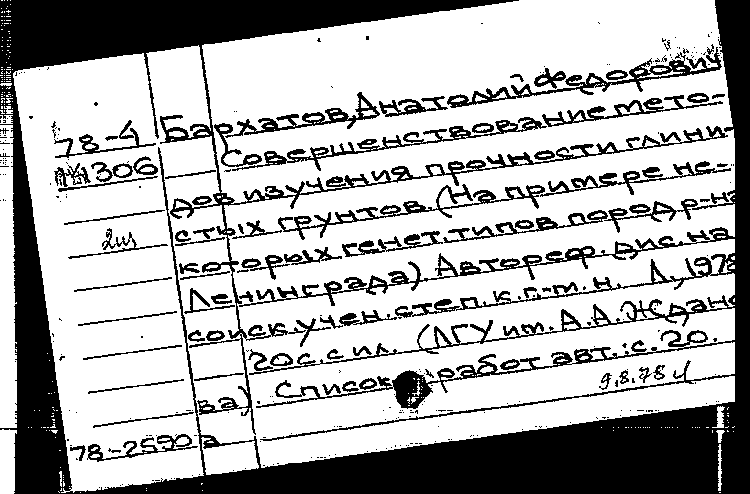 78-4 Бархатов, Анатолий Федорович
306 Совершенствование мето-
дов изучения прочности глини-
стых грунтов. (На примере не-
2из
которых генет. типов пород р-на
Ленинграда). Автореф. дис. на
соиск. учен. степ. к. г.-м. н. Л., 1978
20с. с ил. (ЛГУ им. А. А. Ждано
ва). Список работ авт.: с. 20.
9.8.78
78-2590а